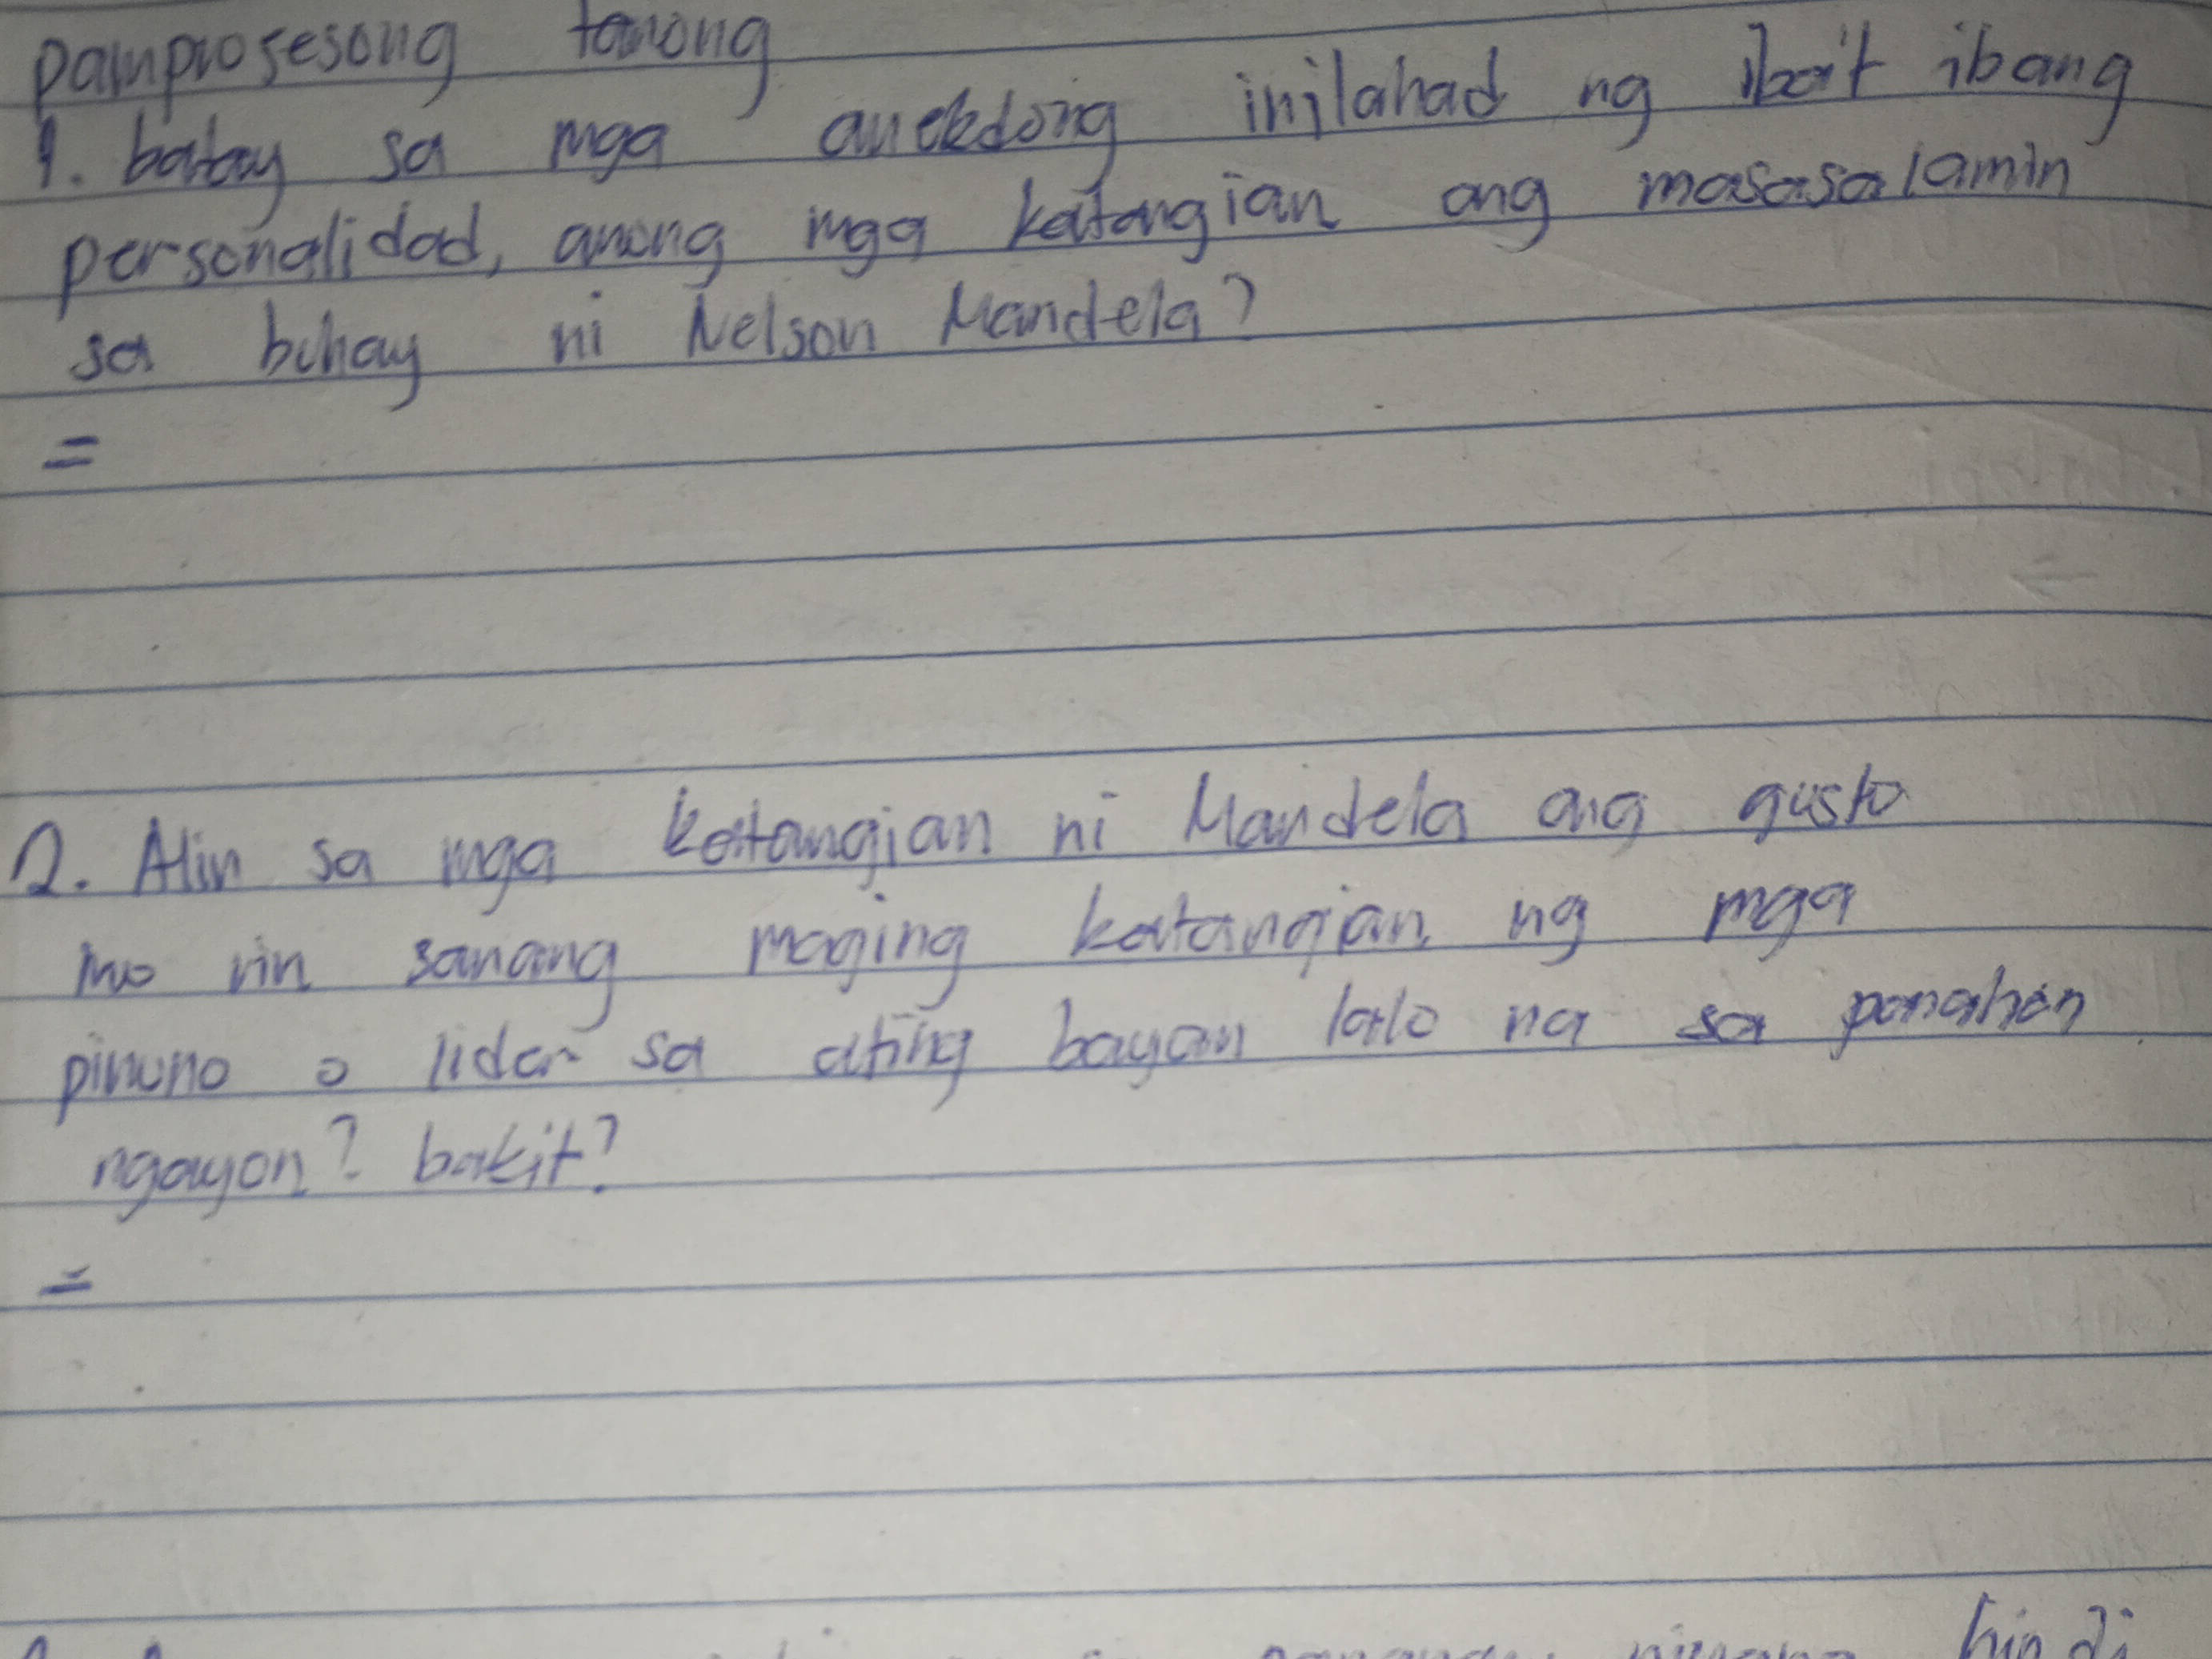 pamprosesong tanong
1. batay sa mga anekdong inilahad ng iba't ibang
personalidad, anong mga katangian ang masasalamin
sa buhay ni Nelson Mandela?
=
2. Alin sa mga katangian ni Mandela ang gusto
mo rin sanang maging katangian ng mga
pinuno o lider sa ating bayan lalo na sa panahon
ngayon? bakit?
=
hindi